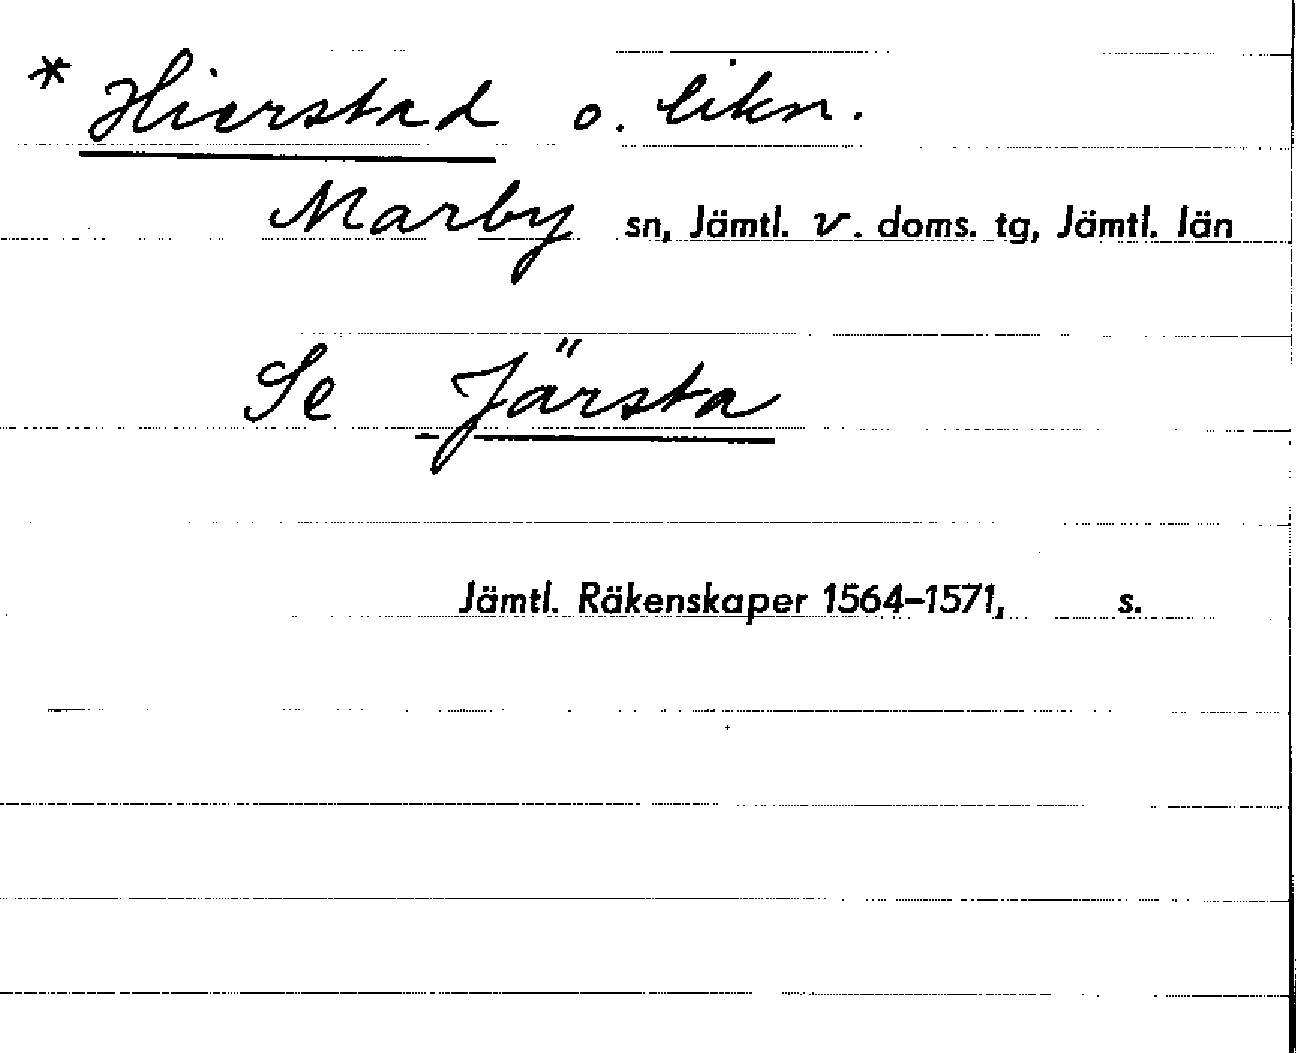 * Hierstad o. likn.
Marby sn, Jämtl. v. doms. tg, Jämtl. län
Se Järsta
Jämtl. Räkenskaper 1564–1571, s.